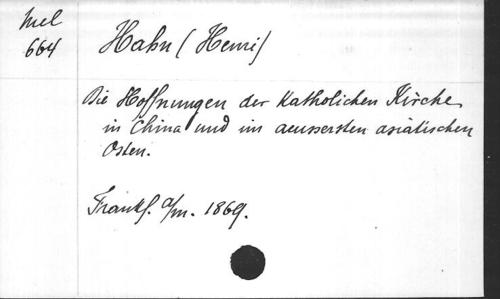 Mel
664
Hahn (Henri)
Die Hoffnungen der Katholichen Kirche
in China und im aeussersten asiatischen
Osten.
Frankf. a/m. 1869.